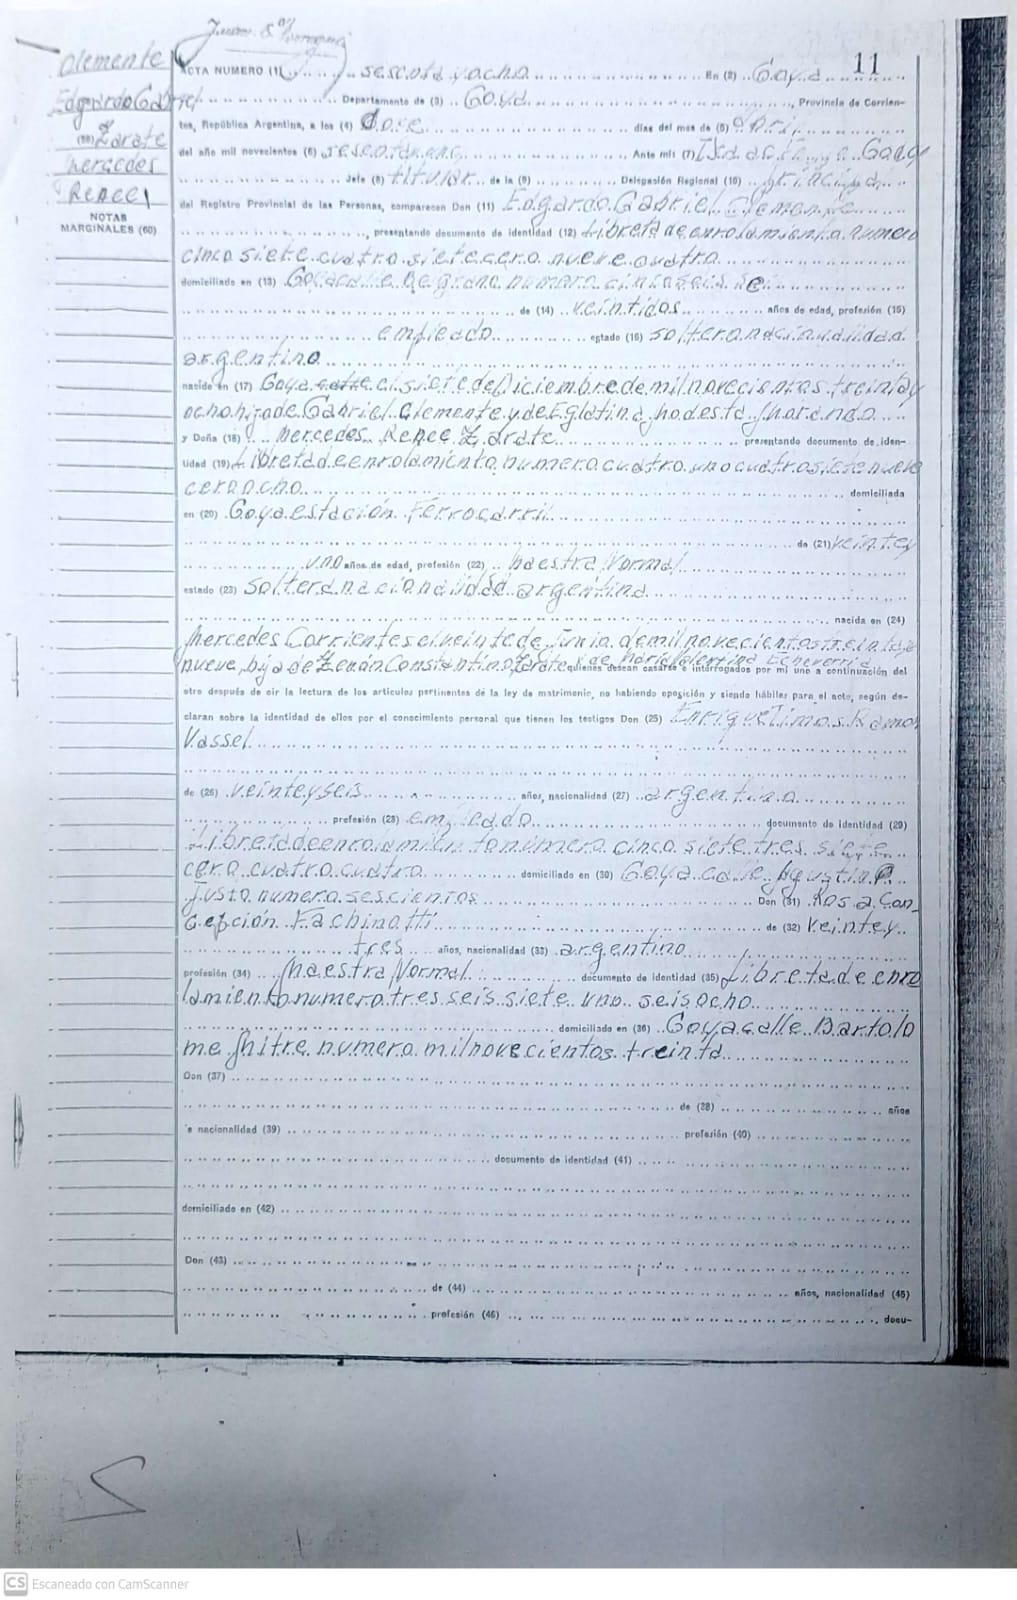 Clemente
Edgardo Gabriel
(59) Zarate
Mercedes
Renee
NOTAS
MARGINALES (60)
11
ACTA NUMERO (1) sesenta y ocho En (2) Goya
Departamento de (3) Goya, Provincia de Corrien-
tes, República Argentina, a los (4) doce días del mes de (5) Abril
del año mil novecientos (6) sesenta y uno Ante mí: (7)
Jefe (8) titular de la (9) Delegación Regional (10)
del Registro Provincial de las Personas, comparecen Don (11) Edgardo Gabriel Clemente
, presentando documento de identidad (12) Libreta de enrolamiento numero
cinco siete cuatro siete cero nueve cuatro
domiciliado en (13) Goya calle Belgrano numero
de (14) veintidos años de edad, profesión (15)
empleado estado (16) soltero nacionalidad
argentino
nacido en (17) Goya el siete de Diciembre de mil novecientos treinta y
ocho hijo de Gabriel Clemente y de
y Doña (18) Mercedes Renee Zarate presentando documento de iden-
tidad (19) Libreta de enrolamiento numero cuatro uno cuatro siete nueve
cero ocho domiciliada
en (20) Goya estación Ferrocarril
de (21) veinte y
uno años de edad, profesión (22) Maestra Normal
estado (23) soltera nacionalidad argentina
nacida en (24)
Mercedes Corrientes el veinte de Junio de mil novecientos treinta y
nueve, hija de Zenón Constantino Zarate y de Maria Valentina Echeverria quienes desean casarse e interrogados por mí uno a continuación del
otro después de oír la lectura de los artículos pertinentes de la ley de matrimonio, no habiendo oposición y siendo hábiles para el acto, según de-
claran sobre la identidad de ellos por el conocimiento personal que tienen los testigos Don (25) Enrique Ramon
Vassel
de (26) veinte y seis años, nacionalidad (27) argentino
profesión (28) empleado documento de identidad (29)
Libreta de enrolamiento numero cinco siete tres siete
cero cuatro cuatro domiciliado en (30) Goya calle Agustin P.
Justo numero sescientos Don (31) Rosa Con-
cepción Fachinotti de (32) veinte y
tres años, nacionalidad (33) argentino
profesión (34) Maestra Normal documento de identidad (35) Libreta de enro
lamiento numero tres seis siete uno seis ocho
domiciliado en (36) Goya calle Bartolo
me Mitre numero mil novecientos treinta
Don (37)
de (38) años
nacionalidad (39) profesión (40)
documento de identidad (41)
domiciliado en (42)
Don (43)
de (44) años, nacionalidad (45)
profesión (46) docu-
CS Escaneado con CamScanner